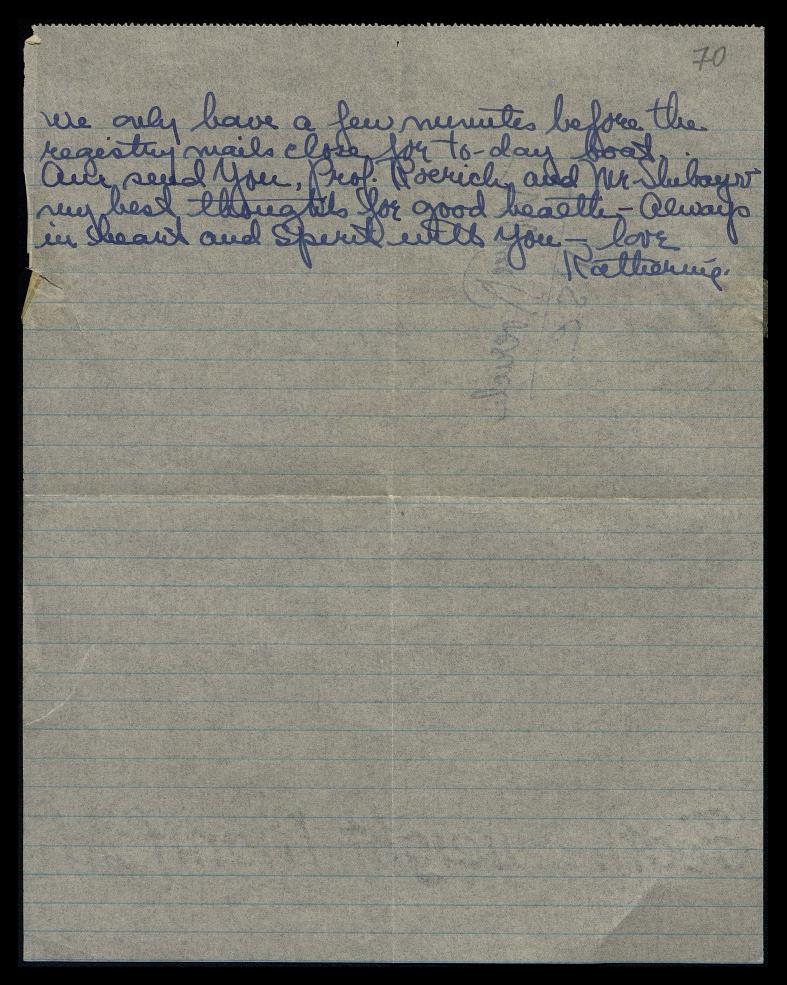 70
we only have a few minutes before the
registry mails close for to-day boat.
Am send You, Prof. Roerich, and Mr. Shibayev
my best thoughts for good health – Always
in heart and Spirit with You – love
Katherine.